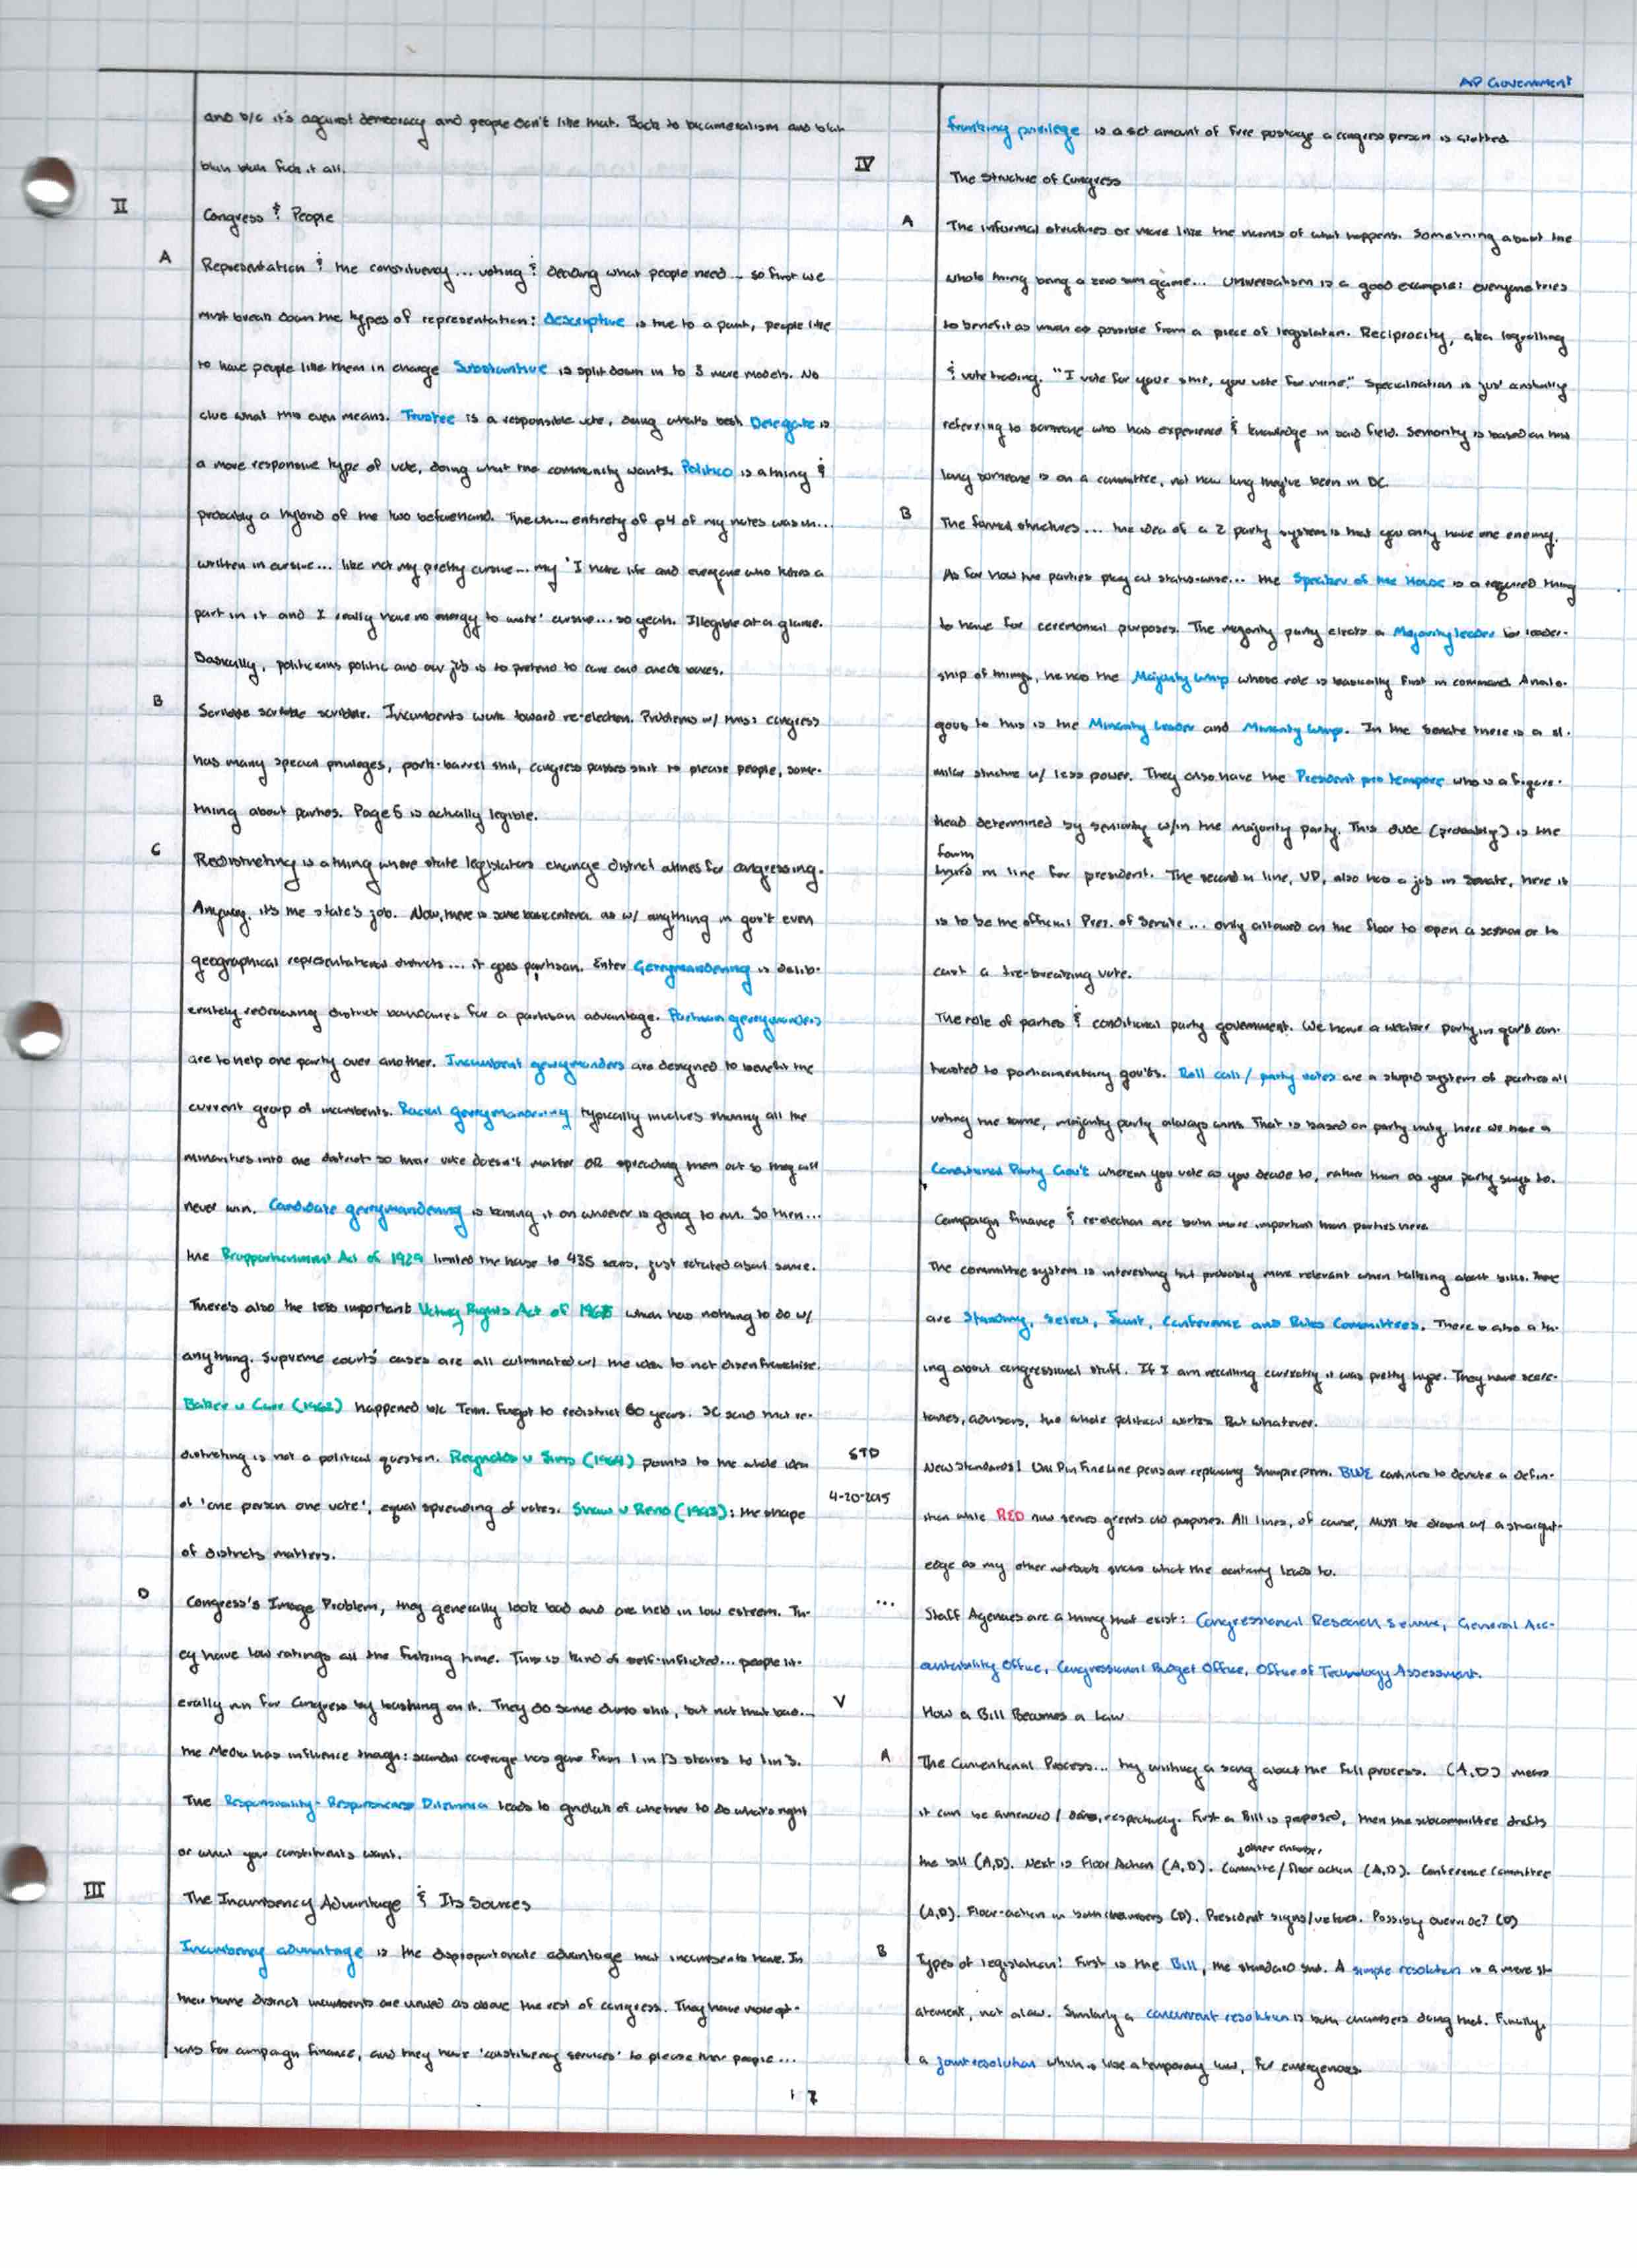 AP Government
and b/c it's against democracy and people don't like that. Back to bicameralism and blah
blah blah fuck it all.
II
Congress & People
A
Representation & the constituency... voting & deciding what people need... so first we
must break down the types of representation: Descriptive is true to a point, people like
to have people like them in charge Substantive is split down in to 3 more models. No
clue what this even means. Trustee is a responsible vote, doing what's best. Delegate is
a more responsive type of vote, doing what the community wants. Politico is a thing &
probably a hybrid of the two beforehand. The uh... entirety of p4 of my notes was uh...
written in cursive... like not my pretty cursive... my 'I hate life and everyone who has a
part in it and I really have no energy to write' cursive... so yeah. Illegible at a glance.
Basically, politicians politic and our job is to pretend to care and check boxes.
B
Scribble scribble scribble. Incumbents work toward re-election. Problems w/ this: congress
has many special privileges, pork-barrel shit, congress passes shit to please people, some-
thing about parties. Page 5 is actually legible.
C
Redistricting is a thing where state legislators change district lines for congressing.
Anyway, it's the state's job. Now, there is some basic criteria as w/ anything in gov't even
geographical representational districts... it goes partisan. Enter Gerrymandering is delib-
erately redrawing district boundaries for a partisan advantage. Partisan gerrymanders
are to help one party over another. Incumbent gerrymanders are designed to benefit the
current group of incumbents. Racial gerrymandering typically involves shoving all the
minorities into one district so their vote doesn't matter OR spreading them out so they will
never win. Candidate gerrymandering is basing it on whoever is going to run. So then...
the Reapportionment Act of 1929 limited the house to 435 seats, just rotated about some.
There's also the less important Voting Rights Act of 1965 which has nothing to do w/
anything. Supreme courts' cases are all culminated w/ the idea to not disenfranchise.
Baker v Carr (1962) happened b/c Tenn. forgot to redistrict 60 years. SC said that re-
districting is not a political question. Reynolds v Sims (1964) points to the whole idea
of 'one person one vote', equal spreading of votes. Shaw v Reno (1993): the shape
of districts matters.
D
Congress's Image Problem, they generally look bad and are held in low esteem. Th-
ey have low ratings all the fucking time. This is kind of self-inflicted... people lit-
erally run for Congress by bashing on it. They do some dumb shit, but not that bad...
the Media has influence though: scandal coverage has gone from 1 in 13 stories to 1 in 3.
The Responsibility-Responsiveness Dilemma leads to gridlock of whether to do what's right
or what your constituents want.
III
The Incumbency Advantage & Its Sources
Incumbency advantage is the disproportionate advantage that incumbents have. In
their home district incumbents are viewed as above the rest of congress. They have more opt-
ions for campaign finance, and they have 'constituency services' to please their people...
franking privilege is a set amount of free postage a congress person is allotted
IV
The Structure of Congress
A
The informal structures or more like the norms of what happens. Something about the
whole thing being a zero sum game... Universalism is a good example: everyone tries
to benefit as much as possible from a piece of legislation. Reciprocity, aka logrolling
& vote trading. "I vote for your shit, you vote for mine." Specialization is just
referring to someone who has experience & knowledge in said field. Seniority is based on how
long someone is on a committee, not how long they've been in DC.
B
The formal structures... the idea of a 2 party system is that you only have one enemy.
As for how the parties play at status-wise... the Speaker of the House is a required thing
to have for ceremonial purposes. The majority party elects a Majority leader for leader-
ship of things, hence the Majority Whip whose role is basically first in command. Analo-
gous to this is the Minority Leader and Minority Whip. In the Senate there is a si-
milar structure w/ less power. They also have the President pro tempore who is a figure-
head determined by seniority w/in the majority party. This dude (probably) is the
fourth
third in line for president. The second in line, VP, also has a job in Senate, here it
is to be the official Pres. of Senate... only allowed on the floor to open a session or to
cast a tie-breaking vote.
The role of parties & conditional party government. We have a weaker party in gov't con-
trasted to parliamentary gov'ts. Roll call / party votes are a stupid system of parties all
voting the same, majority party always wins. That is based on party unity, here we have a
Conditional Party Gov't wherein you vote as you decide to, rather than as your party says to.
Campaign finance & re-election are both more important than parties here.
The committee system is interesting but probably more relevant when talking about bills. There
are Standing, Select, Joint, Conference and Rules Committees. There is also a th-
ing about congressional staff. If I am recalling correctly it was pretty huge. They have secre-
taries, advisors, the whole political works. But whatever.
STD
4-20-2015
New Standards! Uni Pin Fine Line pens are replacing Sharpie pens. BLUE continues to denote a defin-
ition while RED now serves green's old purposes. All lines, of course, MUST be drawn w/ a straight-
edge as my other notebook shows what the contrary leads to.
...
Staff Agencies are a thing that exist: Congressional Research Service, General Acc-
ountability Office, Congressional Budget Office, Office of Technology Assessment.
V
How a Bill Becomes a Law
A
The Conventional Process... try writing a song about the full process. (A,D) means
it can be amended / dies, respectively. First a Bill is proposed, then the subcommittee drafts
other chamber
the bill (A,D). Next is Floor Action (A,D). Committee/floor action (A,D). Conference Committee
(A,D). Floor-action in both chambers (D). President signs/vetoes. Possibly override? (D)
B
Types of legislation! First is the Bill, the standard shit. A simple resolution is a mere st-
atement, not a law. Similarly a concurrent resolution is both chambers doing that. Finally,
a joint resolution which is like a temporary law, for emergencies.
17